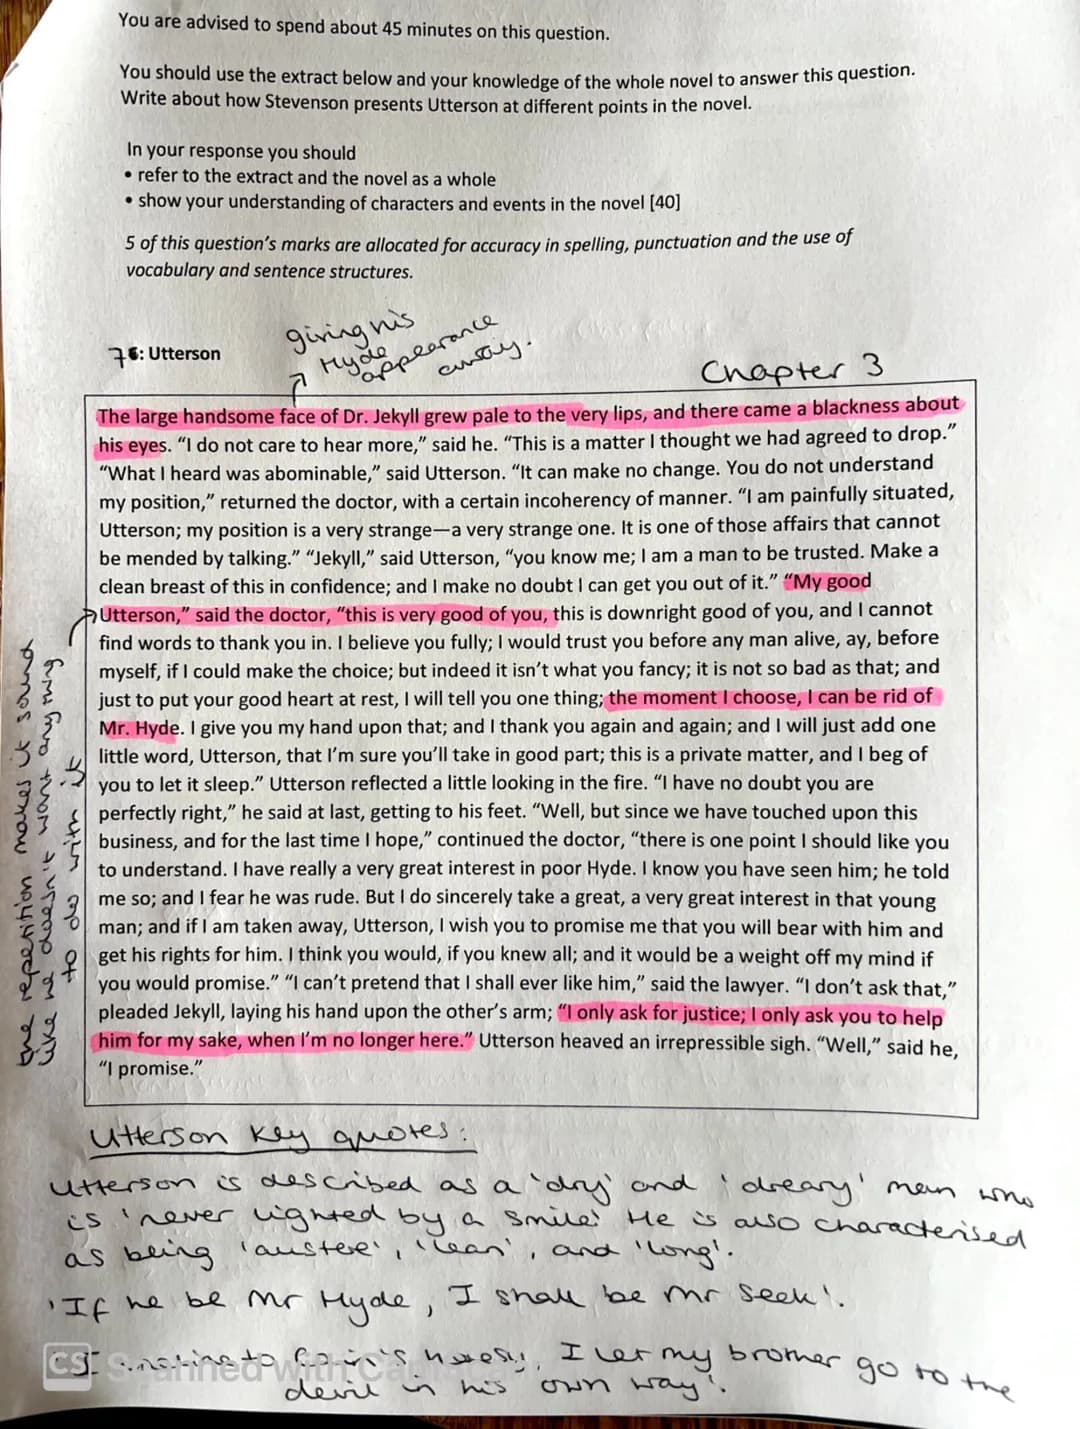 You are advised to spend about 45 minutes on this question.
You should use the extract below and your knowledge of the whole novel to answer this question.
Write about how Stevenson presents Utterson at different points in the novel.
In your response you should
• refer to the extract and the novel as a whole
• show your understanding of characters and events in the novel [40]
5 of this question's marks are allocated for accuracy in spelling, punctuation and the use of
vocabulary and sentence structures.
giving his
Hyde
appearance
away.
: Utterson
Chapter 3
The large handsome face of Dr. Jekyll grew pale to the very lips, and there came a blackness about
his eyes. "I do not care to hear more," said he. "This is a matter I thought we had agreed to drop."
"What I heard was abominable," said Utterson. "It can make no change. You do not understand
my position," returned the doctor, with a certain incoherency of manner. "I am painfully situated,
Utterson; my position is a very strange—a very strange one. It is one of those affairs that cannot
be mended by talking." "Jekyll," said Utterson, "you know me; I am a man to be trusted. Make a
clean breast of this in confidence; and I make no doubt I can get you out of it." "My good
Utterson," said the doctor, "this is very good of you, this is downright good of you, and I cannot
find words to thank you in. I believe you fully; I would trust you before any man alive, ay, before
myself, if I could make the choice; but indeed it isn't what you fancy; it is not so bad as that; and
just to put your good heart at rest, I will tell you one thing; the moment I choose, I can be rid of
Mr. Hyde. I give you my hand upon that; and I thank you again and again; and I will just add one
little word, Utterson, that I'm sure you'll take in good part; this is a private matter, and I beg of
you to let it sleep." Utterson reflected a little looking in the fire. "I have no doubt you are
perfectly right," he said at last, getting to his feet. "Well, but since we have touched upon this
business, and for the last time I hope," continued the doctor, "there is one point I should like you
to understand. I have really a very great interest in poor Hyde. I know you have seen him; he told
me so; and I fear he was rude. But I do sincerely take a great, a very great interest in that young
man; and if I am taken away, Utterson, I wish you to promise me that you will bear with him and
get his rights for him. I think you would, if you knew all; and it would be a weight off my mind if
you would promise." "I can't pretend that I shall ever like him," said the lawyer. "I don't ask that,"
pleaded Jekyll, laying his hand upon the other's arm; "I only ask for justice; I only ask you to help
him for my sake, when I'm no longer here." Utterson heaved an irrepressible sigh. "Well," said he,
"I promise."
the repetition makes it sound
like he doesn't want anything
to do with it
Utterson key quotes:
Utterson is described as a 'dry' and 'dreary' man who
is 'never lighted by a smile.' He is also characterised
as being 'austere', 'lean', and 'long'.
'If he be Mr Hyde, I shall be Mr Seek'.
CS Scanned with
heresy, I let my brother go to the
devil in his own way'.